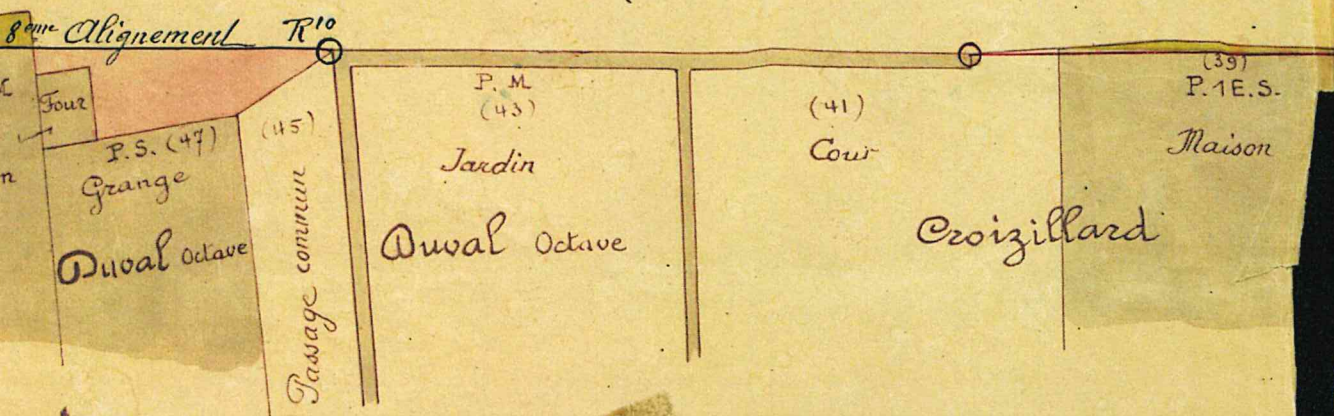 8eme Alignement R'10
Four
P.S. (47)
Grange
Duval Octave
(45)
Passage commun
P. M
(43)
Jardin
Duval Octave
(41)
Cour
Croizillard
(39)
P. 1E.S.
Maison
n